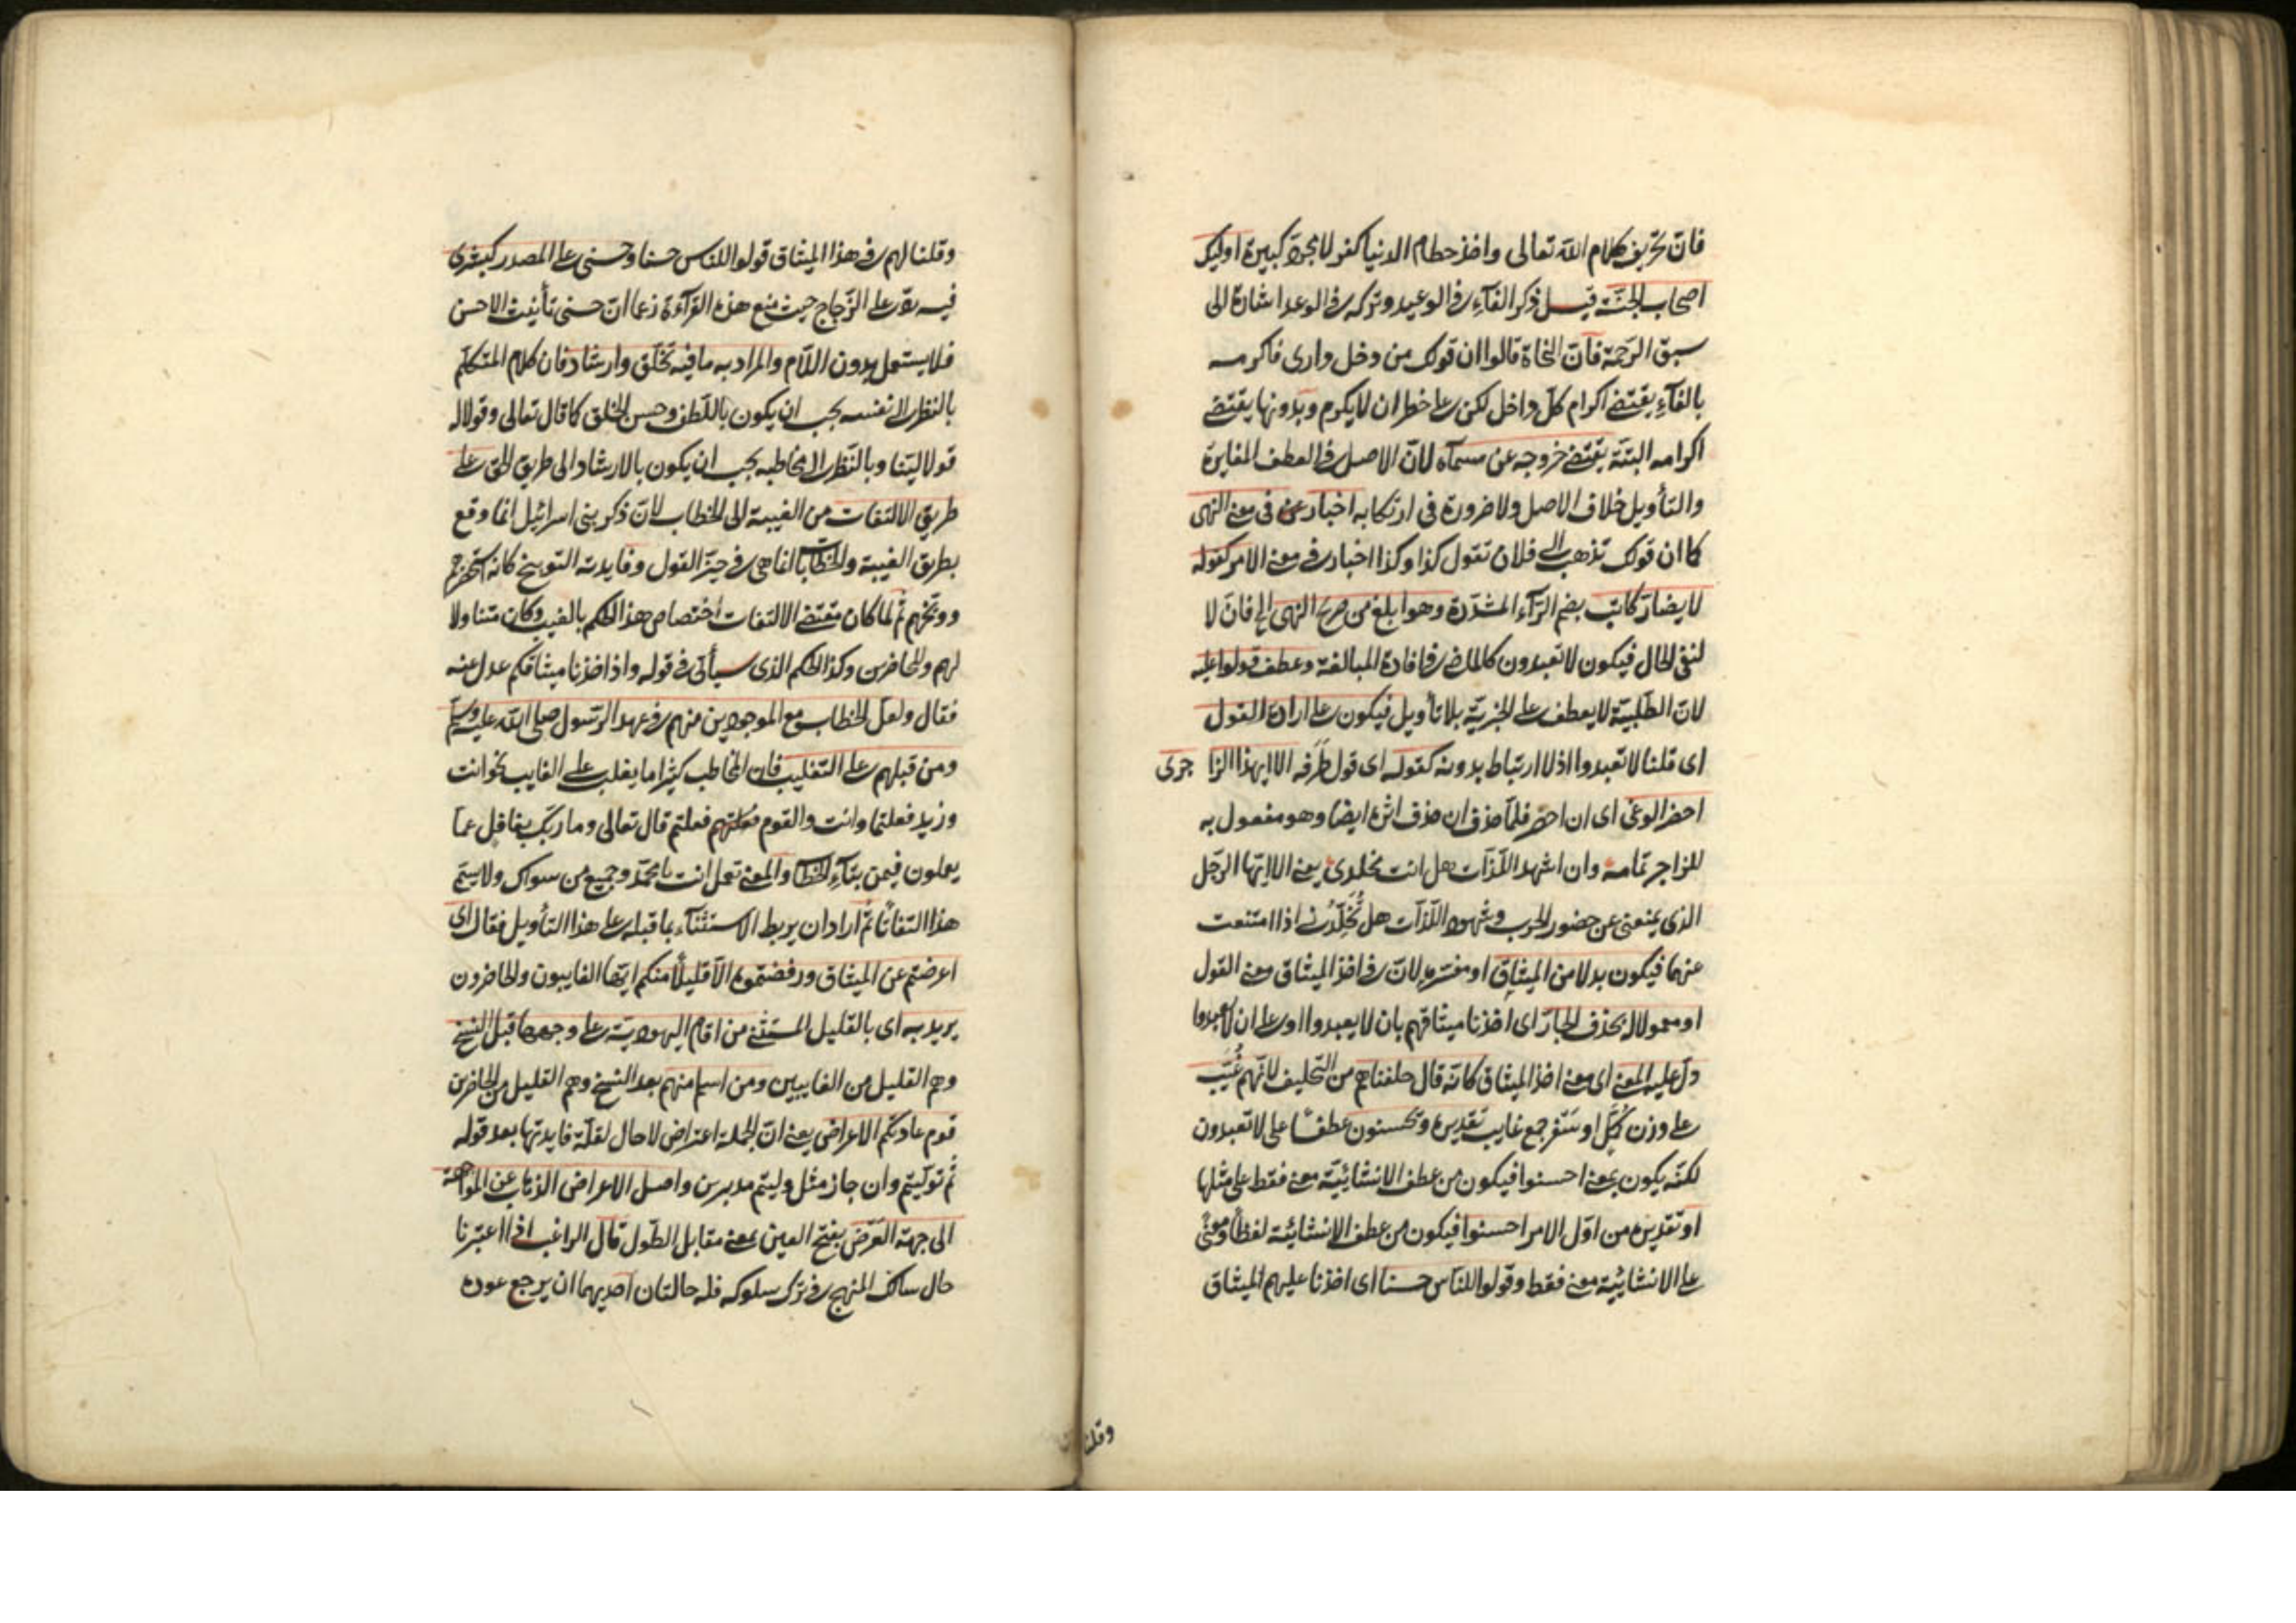 فان تحريف كلام الله تعالى واخذ حطام الدنيا كفر لا مجرد كبيرة اولئك
اصحاب الجنة قيل ذكر الفآء في الوعيد وتركه في الوعد اشارة الى
سبق الرحمة فان النحاة قالوا ان قولك من دخل دارى فاكرمه
بالفآء يقتضى اكرام كل داخل لكن على خطر ان لا يكرم وبدونها يقتضى
اكرامه البتة يقتضى خروجه عن مسماه لان الاصل في العطف المغايرة
والتأويل خلاف الاصل ولا ضرورة فى ارتكابه اخبار فى معنى النهى
كما ان قولك تذهب الى فلان تقول كذا وكذا اخبار في معنى الامر كقوله
لا يضار كاتب بضم الرآء المشددة وهو ابلغ من صريح النهى الخ فان لا
لنفى الحال فيكون لا تعبدون كالماضى في افادة المبالغة وعطف قولوا عليه
لان الطلبية لا يعطف على الخبرية بلا تأويل فيكون على ارادة القول
اى قلنا لا تعبدوا اذ لا ارتباط بدونه كقوله اى قول طرفه الا ايهذا الزا جرى
احضر الوغى اى ان احضر فلما حذف ان حذف اثره ايضا وهو مفعول به
للزاجر تمامه وان اشهد اللذات هل انت مخلدى يعنى الا ايها الرجل
الذى يمنعنى عن حضور الحرب وشهود اللذات هل تخلدنى اذا امتنعت
عنهما فيكون بدلا من الميثاق او مفسره لان في اخذ الميثاق معنى القول
او معمولا له بحذف الجار اى اخذنا ميثاقهم بان لا يعبدوا او على ان لا يعبدوا
دل عليه المعنى اى معنى اخذ الميثاق كانه قال حلفناهم من التحليف لانهم غيب
على وزن ركع او سفر جمع غايب تقديره وتحسنون عطفا على لا تعبدون
لكنه يكون بمعنى احسنوا فيكون من عطف الانشائية معنى فقط على مثلها
او تقديره من اول الامر احسنوا فيكون من عطف الانشائية لفظا ومعنى
على الانشائية معنى فقط وقولوا للناس حسنا اى اخذنا عليهم الميثاق
وقلنا
وقلنا لهم في هذا الميثاق قولوا للناس حسنا وحسنى على المصدر كبشرى
فيه رد على الزجاج حيث منع هذه القرآءة زعما ان حسنى تأنيث الاحسن
فلا يستعمل بدون اللام والمراد به ما فيه تخلق وارشاد فان كلام المتكلم
بالنظر الى نفسه يجب ان يكون باللطف وحسن الخلق كما قال تعالى وقولا له
قولا لينا وبالنظر الى مخاطبه يجب ان يكون بالارشاد الى طريق الحق على
طريق الالتفات من الغيبة الى الخطاب لان ذكر بنى اسرائيل انما وقع
بطريق الغيبة والخطابات انما هى في حيز القول وفايدته التوبيخ كانه استحضرهم
ووبخهم ثم لما كان مقتضى الالتفات اختصاص هذا الحكم بالغيب وكان متناولا
لهم وللحاضرين وكذا الحكم الذى سيأتى في قوله واذ اخذنا ميثاقكم عدل عنه
فقال ولعل الخطاب مع الموجودين منهم في عهد الرسول صلى الله عليه وسلم
ومن قبلهم على التغليب فان المخاطب كثيرا ما يغلب على الغايب نحو انت
وزيد فعلتما وانت والقوم فعلتم قال تعالى وما ربك بغافل عما
يعملون فيمن بتآء الخطاب والمعنى تعمل انت يا محمد وجميع من سواك ولا يسمى
هذا التفاتا ثم اراد ان يربط الاستثنآء بما قبله على هذا التأويل فقال اى
اعرضتم عن الميثاق ورفضتموه الا قليلا منكم ايها الغايبون والحاضرون
يريد به اى بالقليل المستثنى من اقام اليهودية على وجهها قبل النسخ
وهم القليل من الغايبين ومن اسلم منهم بعد النسخ وهم القليل من الحاضرين
قوم عادتكم الاعراض يعنى ان الجملة اعتراض لا حال لقلة فايدتها بعد قوله
ثم توليتم وان جاز مثل وليتم مدبرين واصل الاعراض الذهاب عن المواجهة
الى جهة العرض بفتح العين بمعنى مقابل الطول قال الراغب اذا اعتبرنا
حال سالك المنهج في ترك سلوكه فله حالتان احديهما ان يرجع عوده